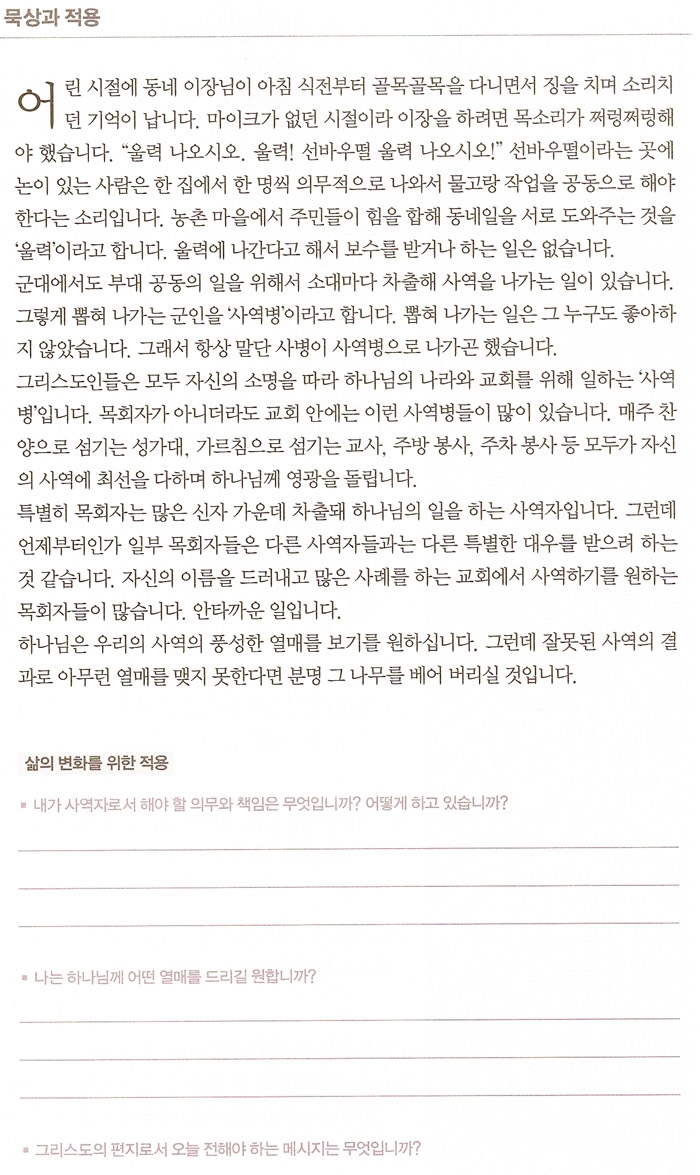 묵상과 적용
어린 시절에 동네 이장님이 아침 식전부터 골목골목을 다니면서 징을 치며 소리치
던 기억이 납니다. 마이크가 없던 시절이라 이장을 하려면 목소리가 쩌렁쩌렁해
야 했습니다. “울력 나오시오. 울력! 선바우떨 울력 나오시오!” 선바우떨이라는 곳에
논이 있는 사람은 한 집에서 한 명씩 의무적으로 나와서 물고랑 작업을 공동으로 해야
한다는 소리입니다. 농촌 마을에서 주민들이 힘을 합해 동네일을 서로 도와주는 것을
‘울력’이라고 합니다. 울력에 나간다고 해서 보수를 받거나 하는 일은 없습니다.
군대에서도 부대 공동의 일을 위해서 소대마다 차출해 사역을 나가는 일이 있습니다.
그렇게 뽑혀 나가는 군인을 ‘사역병’이라고 합니다. 뽑혀 나가는 일은 그 누구도 좋아하
지 않았습니다. 그래서 항상 말단 사병이 사역병으로 나가곤 했습니다.
그리스도인들은 모두 자신의 소명을 따라 하나님의 나라와 교회를 위해 일하는 ‘사역
병’입니다. 목회자가 아니더라도 교회 안에는 이런 사역병들이 많이 있습니다. 매주 찬
양으로 섬기는 성가대, 가르침으로 섬기는 교사, 주방 봉사, 주차 봉사 등 모두가 자신
의 사역에 최선을 다하며 하나님께 영광을 돌립니다.
특별히 목회자는 많은 신자 가운데 차출돼 하나님의 일을 하는 사역자입니다. 그런데
언제부터인가 일부 목회자들은 다른 사역자들과는 다른 특별한 대우를 받으려 하는
것 같습니다. 자신의 이름을 드러내고 많은 사례를 하는 교회에서 사역하기를 원하는
목회자들이 많습니다. 안타까운 일입니다.
하나님은 우리의 사역의 풍성한 열매를 보기를 원하십니다. 그런데 잘못된 사역의 결
과로 아무런 열매를 맺지 못한다면 분명 그 나무를 베어 버리실 것입니다.
삶의 변화를 위한 적용
▪ 내가 사역자로서 해야 할 의무와 책임은 무엇입니까? 어떻게 하고 있습니까?
▪ 나는 하나님께 어떤 열매를 드리길 원합니까?
▪ 그리스도의 편지로서 오늘 전해야 하는 메시지는 무엇입니까?